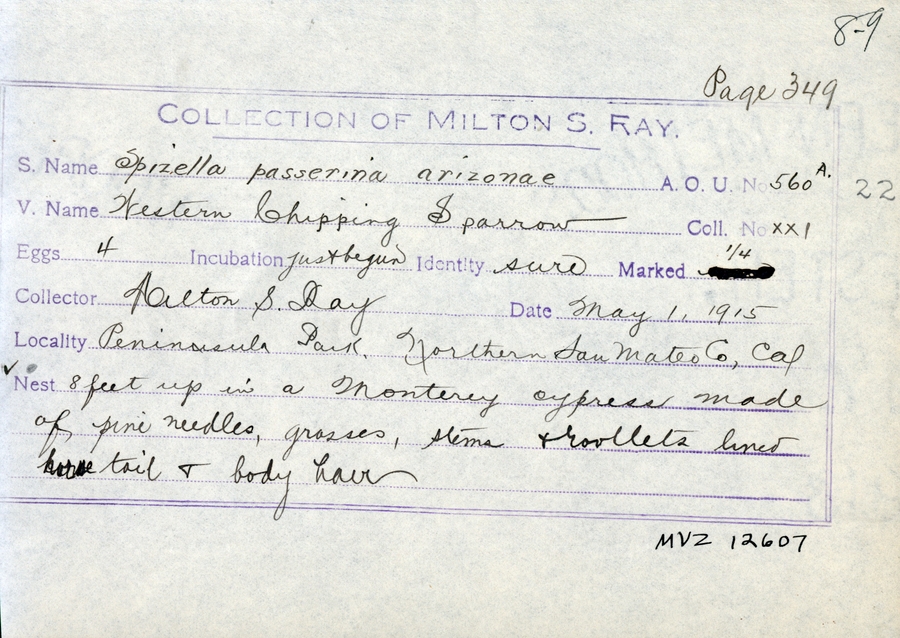 8-9
Page 349
COLLECTION OF MILTON S. RAY.
S. Name Spizella passerina arizonae A. O. U. No 560 A.
22
V. Name Western Chipping Sparrow Coll. No XX1
Eggs 4 Incubation just begun Identity sure Marked 1/4
Collector Milton S. Ray Date May 1, 1915
Locality Peninusula Park, Northern San Mateo Co, Cal
Nest 8 feet up in a Monterey cypress made
of pine needles, grasses, stems & roollets lined
horse tail & body hair
MVZ 12607